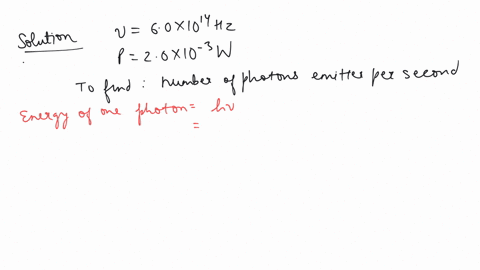 Solution ν = 6.0×10¹⁴ Hz
P = 2.0×10⁻³ W
To find : Number of photons emitter per second
Energy of one photon = hν
=